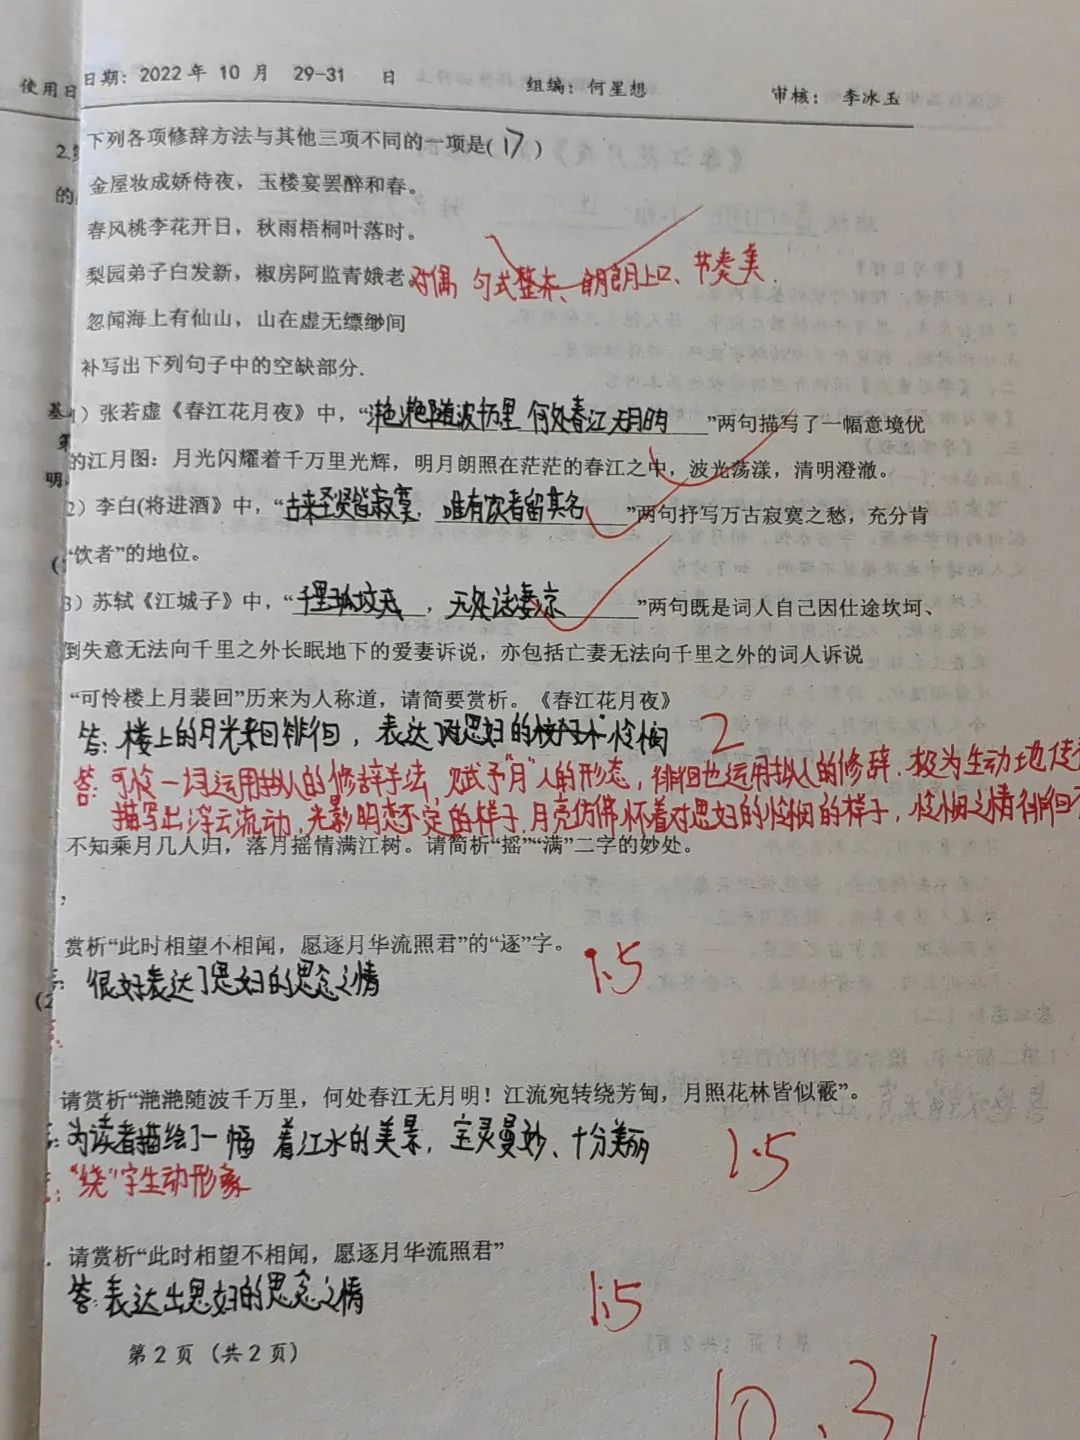 使用日
日期：2022年 10 月 29-31 日 组编：何星想 审核：李冰玉
2.
下列各项修辞方法与其他三项不同的一项是( 17 )
的
金屋妆成娇侍夜，玉楼宴罢醉和春。
春风桃李花开日，秋雨梧桐叶落时。
梨园弟子白发新，椒房阿监青娥老。对偶，句式整齐、朗朗上口、节奏美
忽闻海上有仙山，山在虚无缥缈间
补写出下列句子中的空缺部分.
基
1）张若虚《春江花月夜》中，“滟滟随波千万里 何处春江无月明”两句描写了一幅意境优
第
的江月图：月光闪耀着千万里光辉，明月朗照在茫茫的春江之中，波光荡漾，清明澄澈。
明
2）李白(将进酒》中，“古来圣贤皆寂寞，唯有饮者留其名”两句抒写万古寂寞之愁，充分肯
“饮者”的地位。
3）苏轼《江城子》中，“千里孤坟，无处话凄凉”两句既是词人自己因仕途坎坷、
倒失意无法向千里之外长眠地下的爱妻诉说，亦包括亡妻无法向千里之外的词人诉说
“可怜楼上月裴回”历来为人称道，请简要赏析。《春江花月夜》
答：楼上的月光来回徘徊，表达了对思妇的怜悯 2
答：可怜一词运用拟人的修辞手法，赋予“月”人的形态，徘徊也运用拟人的修辞、极为生动地
描写出浮云流动，光影明态不定的样子，月亮仿佛怀着对思妇的怜悯的样子，怜悯之情徘徊不
不知乘月几人归，落月摇情满江树。请简析“摇”“满”二字的妙处。
赏析“此时相望不相闻，愿逐月华流照君”的“逐”字。
1.5
很好表达了思妇的思念之情
(2
请赏析“滟滟随波千万里，何处春江无月明！江流宛转绕芳甸，月照花林皆似霰”。
为读者描绘了一幅 着江水的美景，空灵曼妙、十分美丽 1.5
“绕”字生动形象
请赏析“此时相望不相闻，愿逐月华流照君”
答：表达出思妇的思念之情 1.5
第 2 页（共 2 页）
10.31